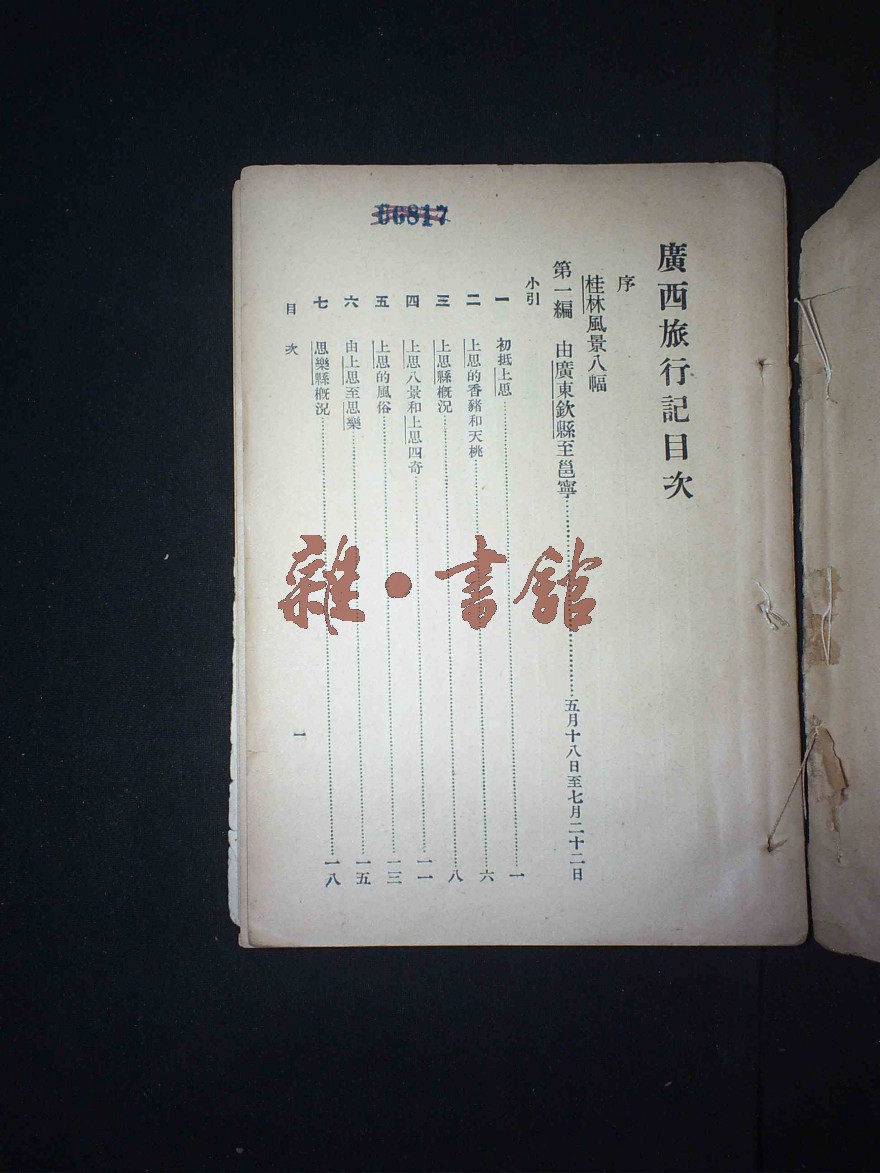 廣西旅行記目次
序
桂林風景八幅
第一編　由廣東欽縣至邕寧…………五月十八日至七月二十二日
小引
一　初抵上思…………一
二　上思的香豬和天桃…………六
三　上思縣概況…………八
四　上思八景和上思四奇…………一一
五　上思的風俗…………一三
六　由上思至思樂…………一五
七　思樂縣概況…………一八
目次　一
66817
雜·書館